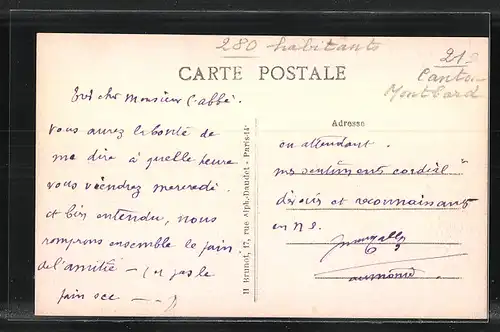 280 habitants
21
Canton
Montbard
CARTE POSTALE
très cher Monsieur l'abbé.
vous aurez la bonté de
me dire à quelle heure
vous viendrez mercredi.
et bien entendu, nous
romprons ensemble le pain
de l'amitié — (et pas le
pain sec — —)
H. Brunot, 17, rue Alph.-Daudet - Paris-14e
Adresse
en attendant.
mes sentiments cordial"
dévoués et reconnaissants
en N S.